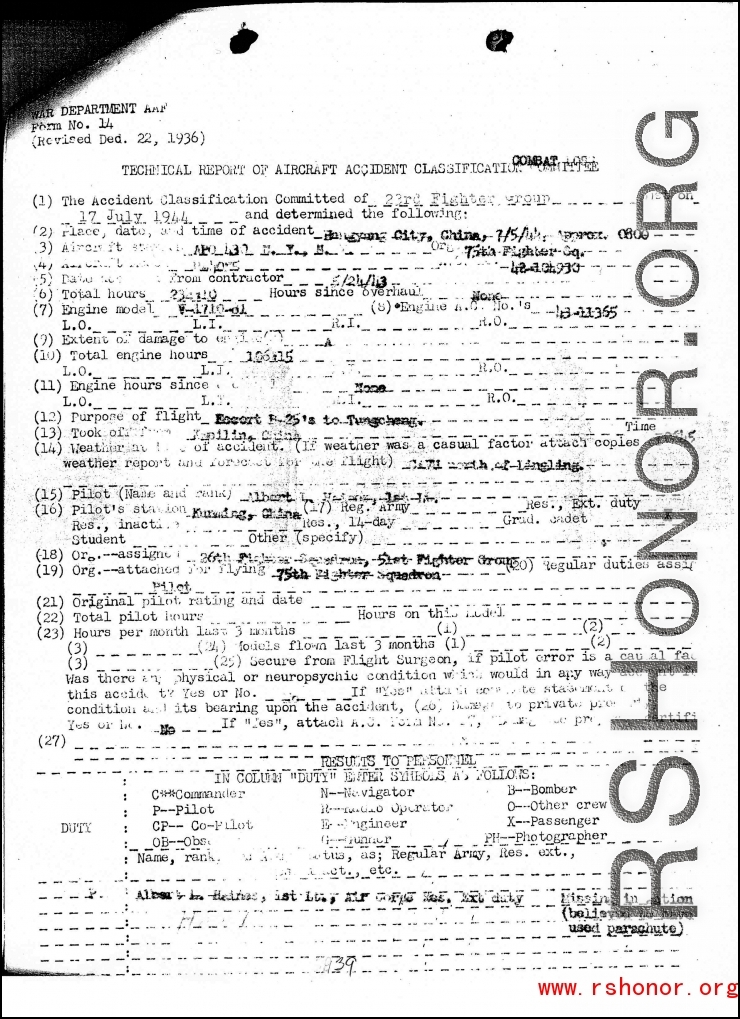 WAR DEPARTMENT AAF
Form No. 14
(Revised Ded. 22, 1936)
COMBAT LOSS
TECHNICAL REPORT OF AIRCRAFT ACCIDENT CLASSIFICATION COMMITTEE
(1) The Accident Classification Committed of 23rd Fighter Group on
17 July 1944 and determined the following:
(2) Place, date, and time of accident Hengyang City, China, 7/5/44, Approx. 0800
(3) Aircraft APO 430 N. Y., N. Org 75th Fighter Sq.
(4) Aircraft 42-104930
(5) Date from contractor 5/24/43
(6) Total hours 234:10 Hours since overhaul None
(7) Engine model V-1710-81 (8) Engine A.C. No.'s 43-11365
L.O. L.I. R.I. R.O.
(9) Extent of damage to A
(10) Total engine hours 106:15
L.O. L.I. R.O.
(11) Engine hours since None
L.O. L.I. R.O.
(12) Purpose of flight Escort B-25's to Tungcheng.
(13) Took off from Kweilin, China Time
(14) Weather at of accident. (If weather was a casual factor attach copies of
weather report and forecast for the flight) CAVU north of Lingling.
(15) Pilot (Name and rank) Albert L. Haines, 1st Lt.
(16) Pilot's station Kunming, China (17) Reg. Army Res., Ext. duty
Res., inactive Res., 14-day Grad. cadet
Student Other (specify)
(18) Org.--assigned 26th Fighter Squadron, 51st Fighter Group
(19) Org.--attached for flying 75th Fighter Squadron (20) Regular duties assig
Pilot
(21) Original pilot rating and date
(22) Total pilot hours Hours on this model
(23) Hours per month last 3 months (1) (2)
(3) (24) Models flown last 3 months (1) (2)
(3) (25) Secure from Flight Surgeon, if pilot error is a causal fac
Was there any physical or neuropsychic condition which would in any way
this accident? Yes or No. If "Yes" attach complete statement of the
condition and its bearing upon the accident, (26) Damage to private
Yes or No. No If "Yes", attach A.C. Form No.
(27)
RESULTS TO PERSONNEL
IN COLUMN "DUTY" ENTER SYMBOLS AS FOLLOWS:
C**Commander N--Navigator B--Bomber
P--Pilot R--Radio Operator O--Other crew
DUTY CP-- Co-Pilot E--Engineer X--Passenger
OB--Obs G--Gunner PH--Photographer
Name, rank, status, as; Regular Army, Res. ext.,
act., etc.
P. Albert L. Haines, 1st Lt., Air Corps Res. Ext duty Missing in action
(believed to have
used parachute)
439
RSHONOR.ORG
www.rshonor.org